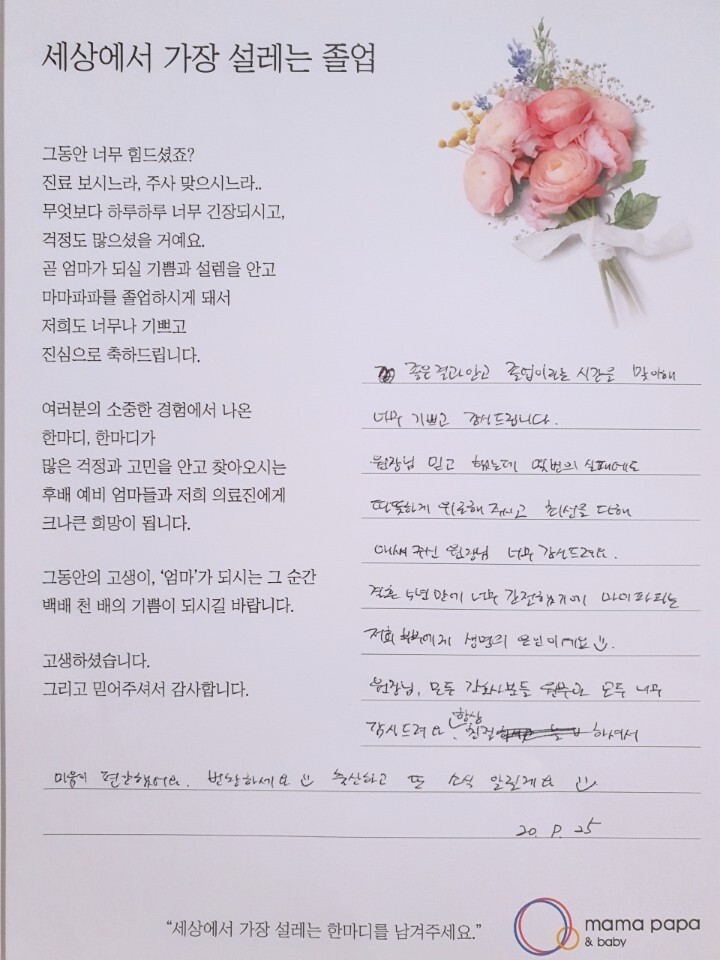 세상에서 가장 설레는 졸업
그동안 너무 힘드셨죠?
진료 보시느라, 주사 맞으시느라..
무엇보다 하루하루 너무 긴장되시고,
걱정도 많으셨을 거예요.
곧 엄마가 되실 기쁨과 설렘을 안고
마마파파를 졸업하시게 돼서
저희도 너무나 기쁘고
진심으로 축하드립니다.
여러분의 소중한 경험에서 나온
한마디, 한마디가
많은 걱정과 고민을 안고 찾아오시는
후배 예비 엄마들과 저희 의료진에게
크나큰 희망이 됩니다.
그동안의 고생이, '엄마'가 되시는 그 순간
백배 천 배의 기쁨이 되시길 바랍니다.
고생하셨습니다.
그리고 믿어주셔서 감사합니다.
좋은결과안고 졸업이라는 시간을 맞이해
너무 기쁘고 감사드립니다.
원장님 믿고 했는데 몇번의 실패에도
따뜻하게 위로해 주시고 최선을 다해
애써 주신 원장님 너무 감사드려요.
결혼 5년 만에 너무 간절했기에 마미파파는
저희 부부에게 생명의 은인이에요
원장님, 모든 간호사분들 원무과 모두 너무
감사드려요. 항상 친절 하셔서
마음이 편안했어요. 번창하세요 출산하고 또 소식 알릴게요
20. 9. 25
"세상에서 가장 설레는 한마디를 남겨주세요."
mama papa
& baby